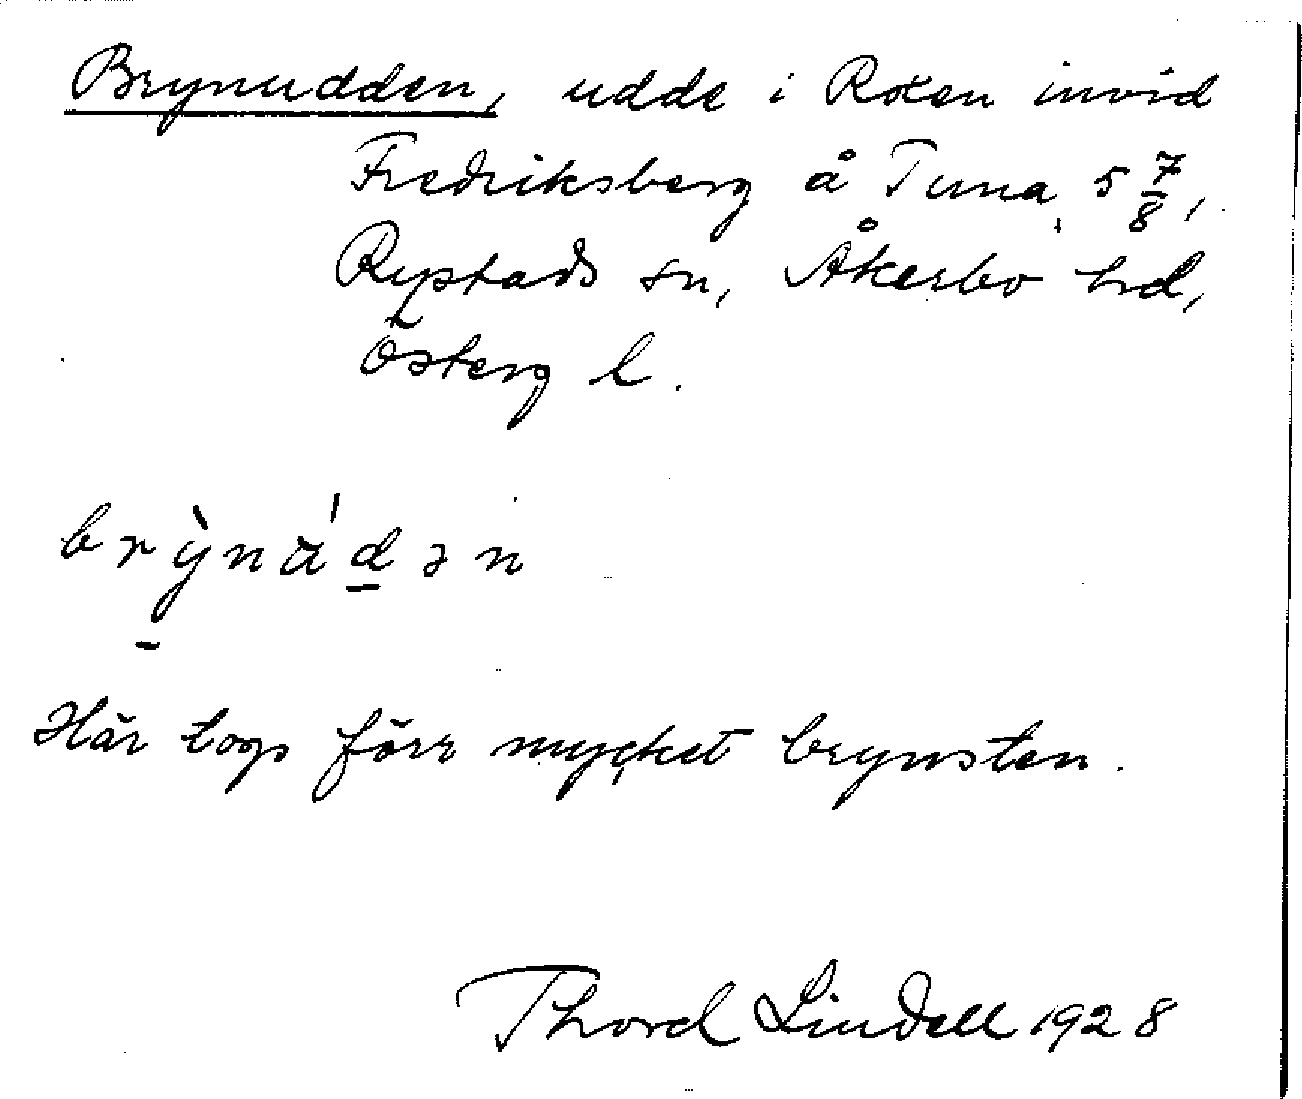 Brynudden, udde i Roxen invid
Fredriksberg å Tuna, 5 7/8,
Rystads sn, Åkerbo hd,
Österg l.
brỳnádən
Här togs förr mycket brynsten.
Thord Lindell 1928